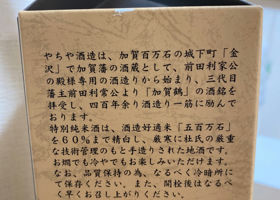 やちや酒造は、加賀百万石の城下町「金
沢」で加賀藩の酒蔵として、前田利家公
の殿様専用の酒造りから始まり、三代目
藩主前田利常公より「加賀鶴」の酒銘を
拝受し、四百年余り酒造り一筋に励んで
おります。
特別純米酒は、酒造好適米「五百万石」
を60%まで精白し、厳寒に杜氏の厳重
な技術管理のもと手造りされた地酒です。
お燗でも冷やでもお楽しみいただけます。
なお、品質保持の為、なるべく冷暗所に
て保存ください。また、開栓後はなるべ
く早くお召し上がりください。